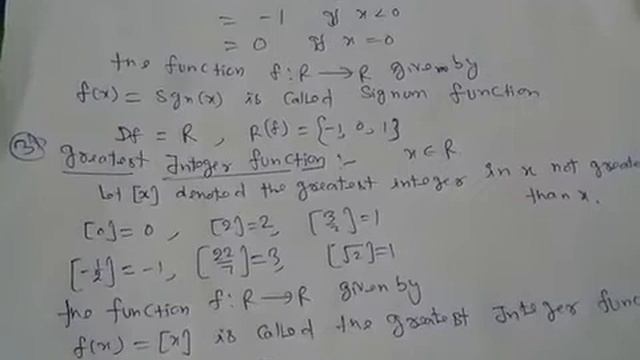 = -1 if x<0
= 0 if x=0
the function f:R→R given by
f(x) = Sgn(x) is called Signum function
Df = R, R(f) = {-1, 0, 1}
③ greatest Integer function :- x∈R
let [x] denoted the greatest integer in x not greate
than x.
[0]=0, [2]=2, [3/2]=1
[-1/2]=-1, [22/7]=3, [√2]=1
the function f:R→R given by
f(x) = [x] is called the greatest Integer func